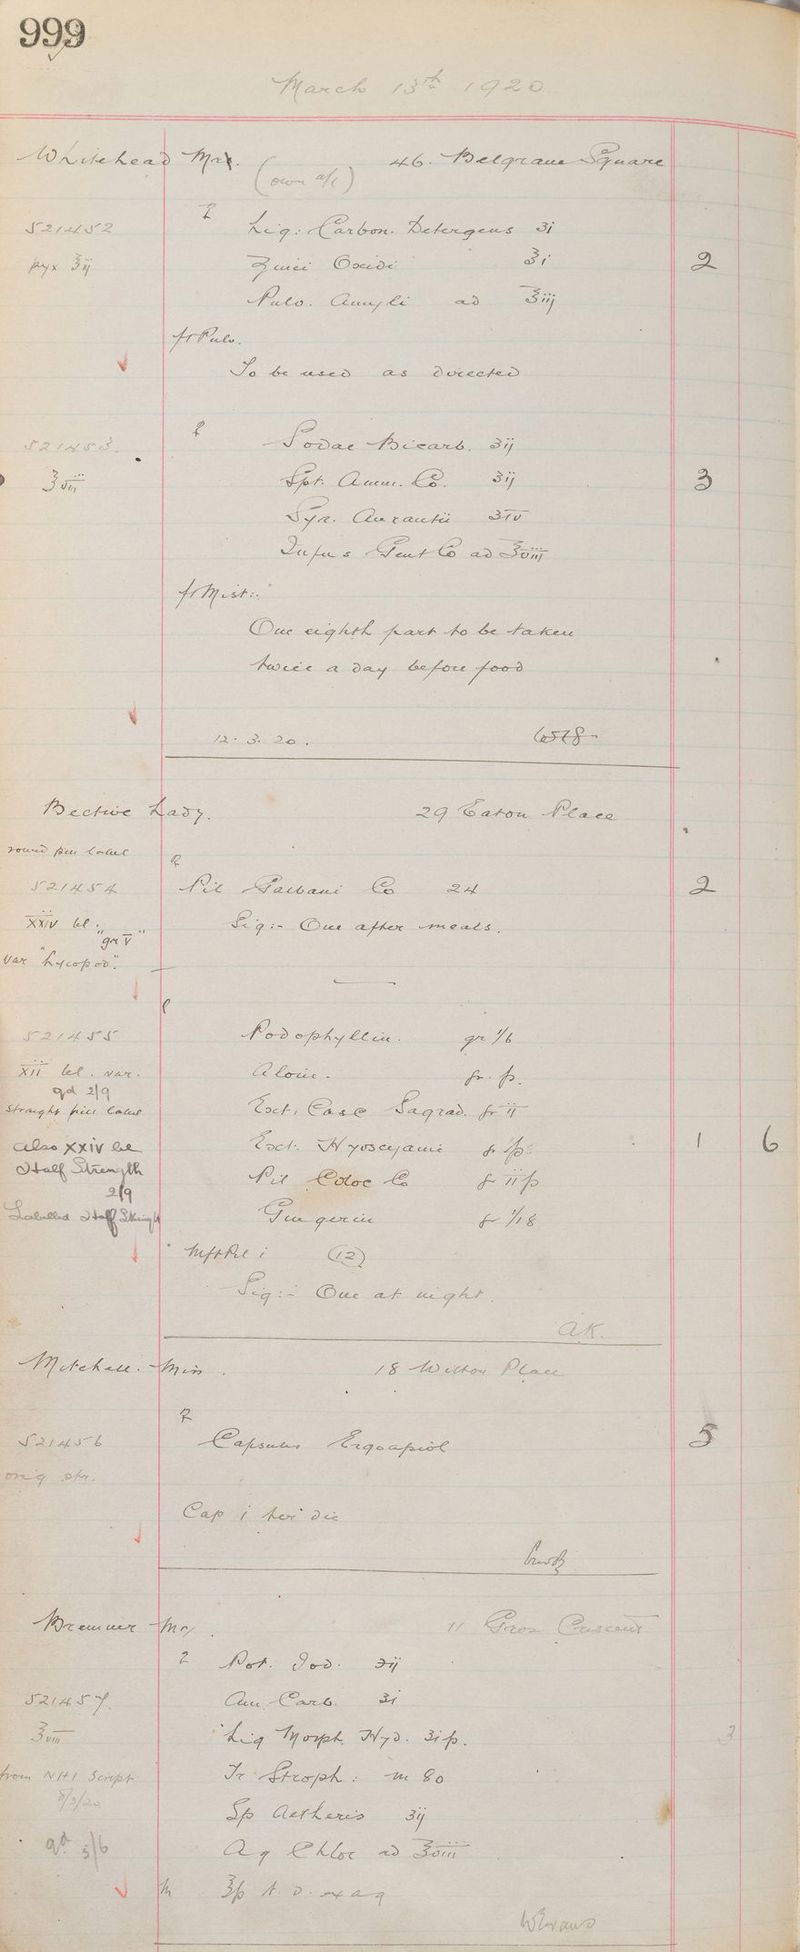 999
March 13th 1920
Whitehead Mrs. 46. Belgrave Square
(own a/c)
℞
521452 Liq: Carbon. Detergens ʒi
pyx ℥ij Zinci Oxidi ℥i 2
Pulv. Amyli ad ℥iij
ft Pulv.
To be used as directed
℞
521453. Sodae Bicarb. ʒij
℥viii Spt. Amm. Co. ʒij 3
Syr. Aurantii ʒiv
Infus Gent Co ad ℥viii
ft Mist:.
One eighth part to be taken
twice a day before food
12. 3. 20.
Bective Lady. 29 Eaton Place
round pill label ℞
521454 Pil Galbani Co 24 2
xxiv bl. Sig:- One after meals.
"gr v"
var "Lycopod".
℞
521455 Podophyllin. gr 1/6
xii bl. var. Aloin. gr. ſs.
qd 2/9
straight pill label Ext. Casc Sagrad. gr ii
also xxiv bl Ext. Hyoscyami gr ſs 1 6
Half Strength Pil Coloc Co gr iiſs
2/9
Labelled Half Strength Gingerin gr 1/18
Mft Pil i (12)
Sig:- One at night.
A.K.
Mitchell. Miss. 18 Wilton Place
℞
521456 Capsules Ergoapiol 5
orig ptr.
Cap i ter die
Bremner Mrs. 11 Gros Crescent
℞ Pot. Iod. ʒij
521457. Am. Carb. ʒi
℥viii Liq Morph. Hyd. ʒiſs. 3
from NHI Script Tr Stroph: m 80
8/3/20 Sp Aetheris ʒij
qd 5/6 Aq Chlor ad ℥viii
M ℥ſs t. d. ex aq
W Evans